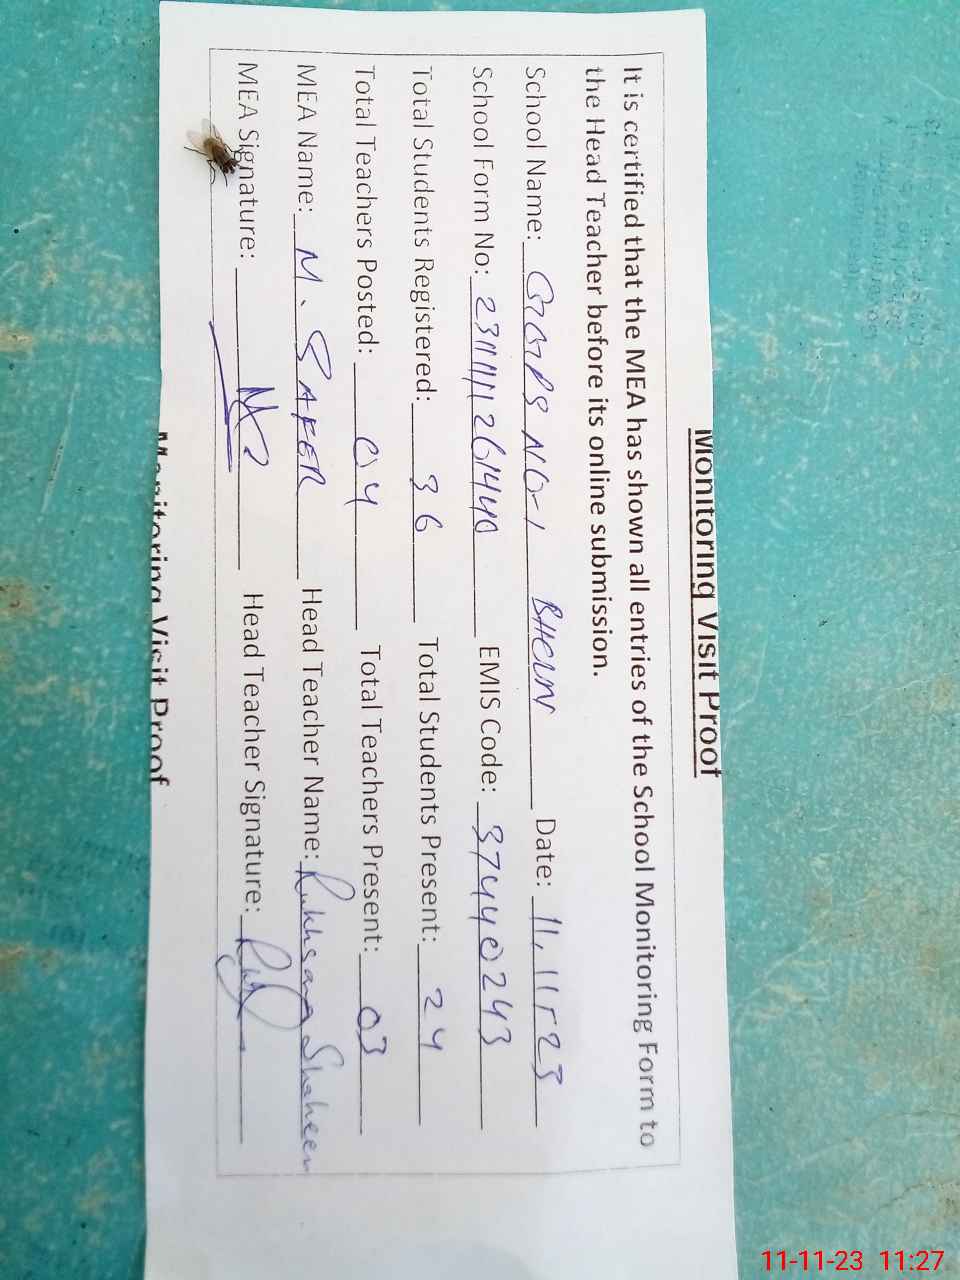 Monitoring Visit Proof
It is certified that the MEA has shown all entries of the School Monitoring Form to
the Head Teacher before its online submission.
School Name: GGPS NO-1 BHOUN Date: 11.11-23
School Form No: 231111261440 EMIS Code: 37440243
Total Students Registered: 36 Total Students Present: 24
Total Teachers Posted: 04 Total Teachers Present: 03
MEA Name: M. SAFER Head Teacher Name: Rukhsana Shaheen
MEA Signature: Head Teacher Signature:
Monitoring Visit Proof
11-11-23 11:27